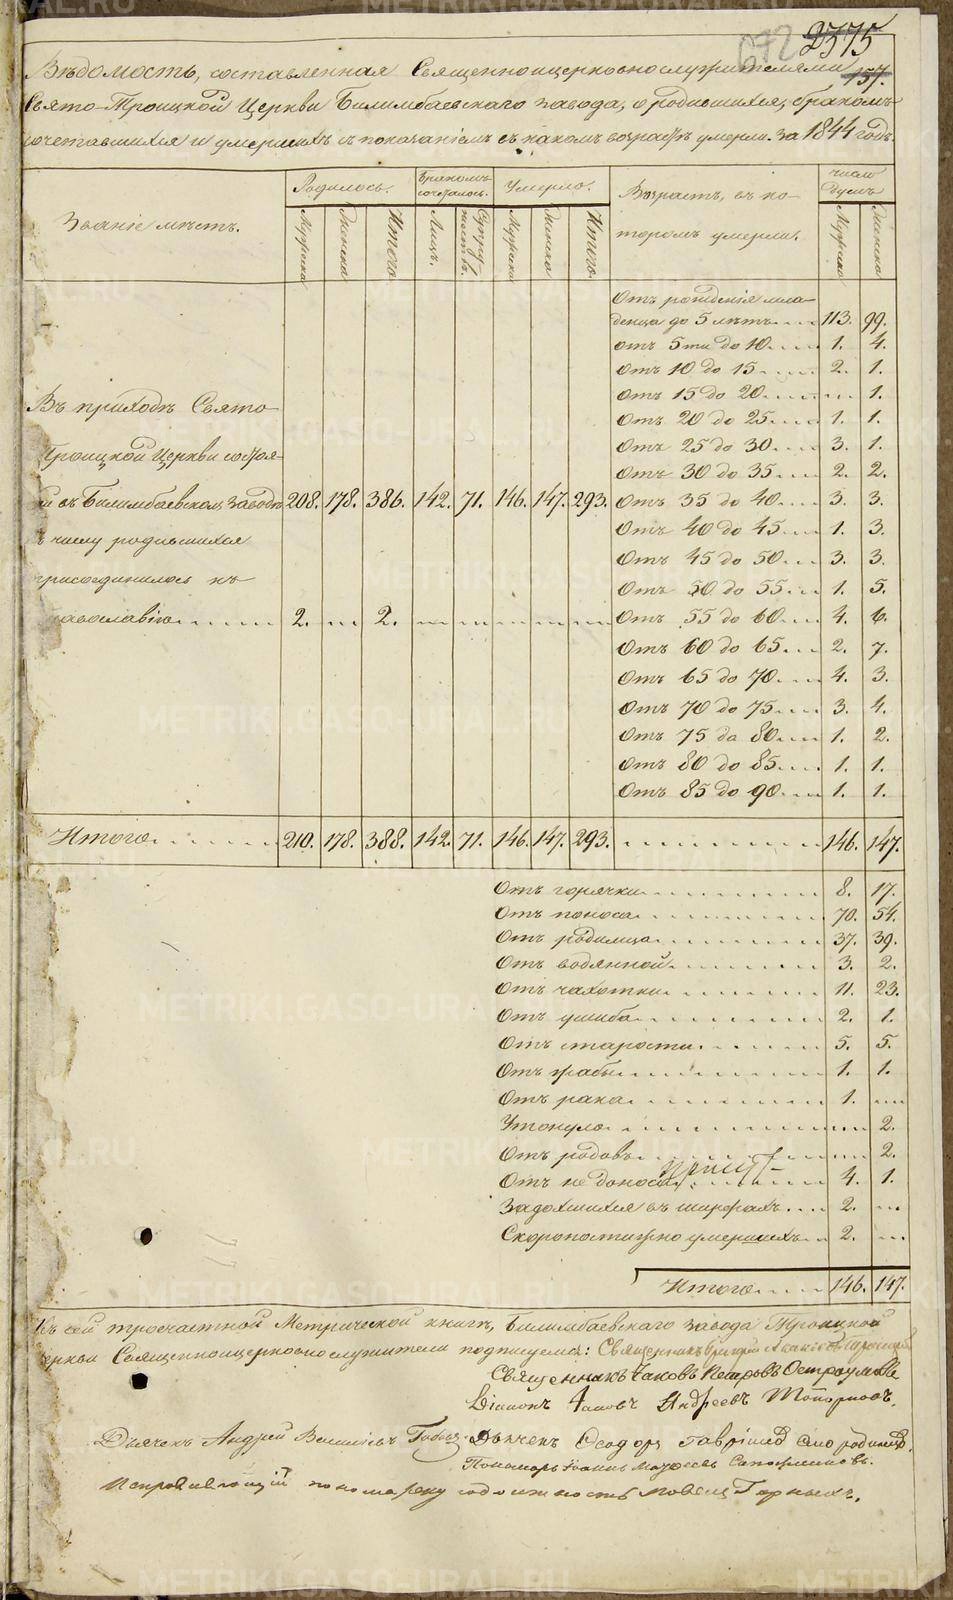 2375
072
157.
Вѣдомость, составленная Священноицерковнослужителями
Свято-Троицкой Церкви Билимбаевскаго завода, о родившихся, бракомъ
сочетавшихся и умершихъ съ показаніемъ въ какомъ возрастѣ умерли. за 1844 годъ.
Званіе мѣстъ.
Родилось.
Бракомъ сочеталось.
Умерло.
Возрастъ, въ ко-
торомъ умерли.
число Душъ
Мужеска Женска Итого. Лицъ. Супружествъ. Мужеска Женска Итого. Мужеска Женска
Отъ рожденія мла-
денца до 5 лѣтъ 113. 99.
Отъ 5ти до 10 1. 4.
Отъ 10 до 15 2. 1.
Отъ 15 до 20 1.
Отъ 20 до 25 1. 1.
Отъ 25 до 30 3. 1.
Отъ 30 до 35 2. 2.
Отъ 35 до 40 3. 3.
Отъ 40 до 45 1. 3.
Отъ 45 до 50 3. 3.
Отъ 50 до 55 1. 5.
Отъ 55 до 60 4. 6.
Отъ 60 до 65 2. 7.
Отъ 65 до 70 4. 3.
Отъ 70 до 75 3. 4.
Отъ 75 до 80 1. 2.
Отъ 80 до 85 1. 1.
Отъ 85 до 90 1. 1.
Въ приходѣ Свято
Троицкой Церкви состоя-
въ Билимбаевскомъ заводѣ 208. 178. 386. 142. 71. 146. 147. 293.
числу родившихся
присоединилось къ
авославію 2. 2.
Итого 210. 178. 388. 142. 71. 146. 147. 293. 146. 147.
Отъ горячки 8. 17.
Отъ поноса 70. 54.
Отъ родимца 37. 39.
Отъ водянной 3. 2.
Отъ чахотки 11. 23.
Отъ ушиба 2. 1.
Отъ старости 5. 5.
Отъ жабы 1. 1.
Отъ рака 1.
Утонуло 2.
Отъ родовъ 2.
Отъ не доноса 4. 1.
Задохшихся въ шурфахъ 2.
Скоропостижно умершихъ 2.
Итого 146. 147.
Къ сей троечастной Метрической книгѣ, Билимбаевскаго завода Троицкой
Церкви Священноицерковнослужители подписуемся: Священникъ
Священникъ Іаковъ Петровъ Остроумовъ
Діаконъ Іаковъ Андреевъ Топорковъ.
Дьячекъ Андрей Васильевъ Дьячекъ Ѳеодоръ Гавріиловъ Смородинцовъ.
Пономарь Іоаннъ Матѳеевъ Сапожниковъ.
Исправляющій пономарскую должность Горныхъ.
METRIKI.GASO-URAL.RU